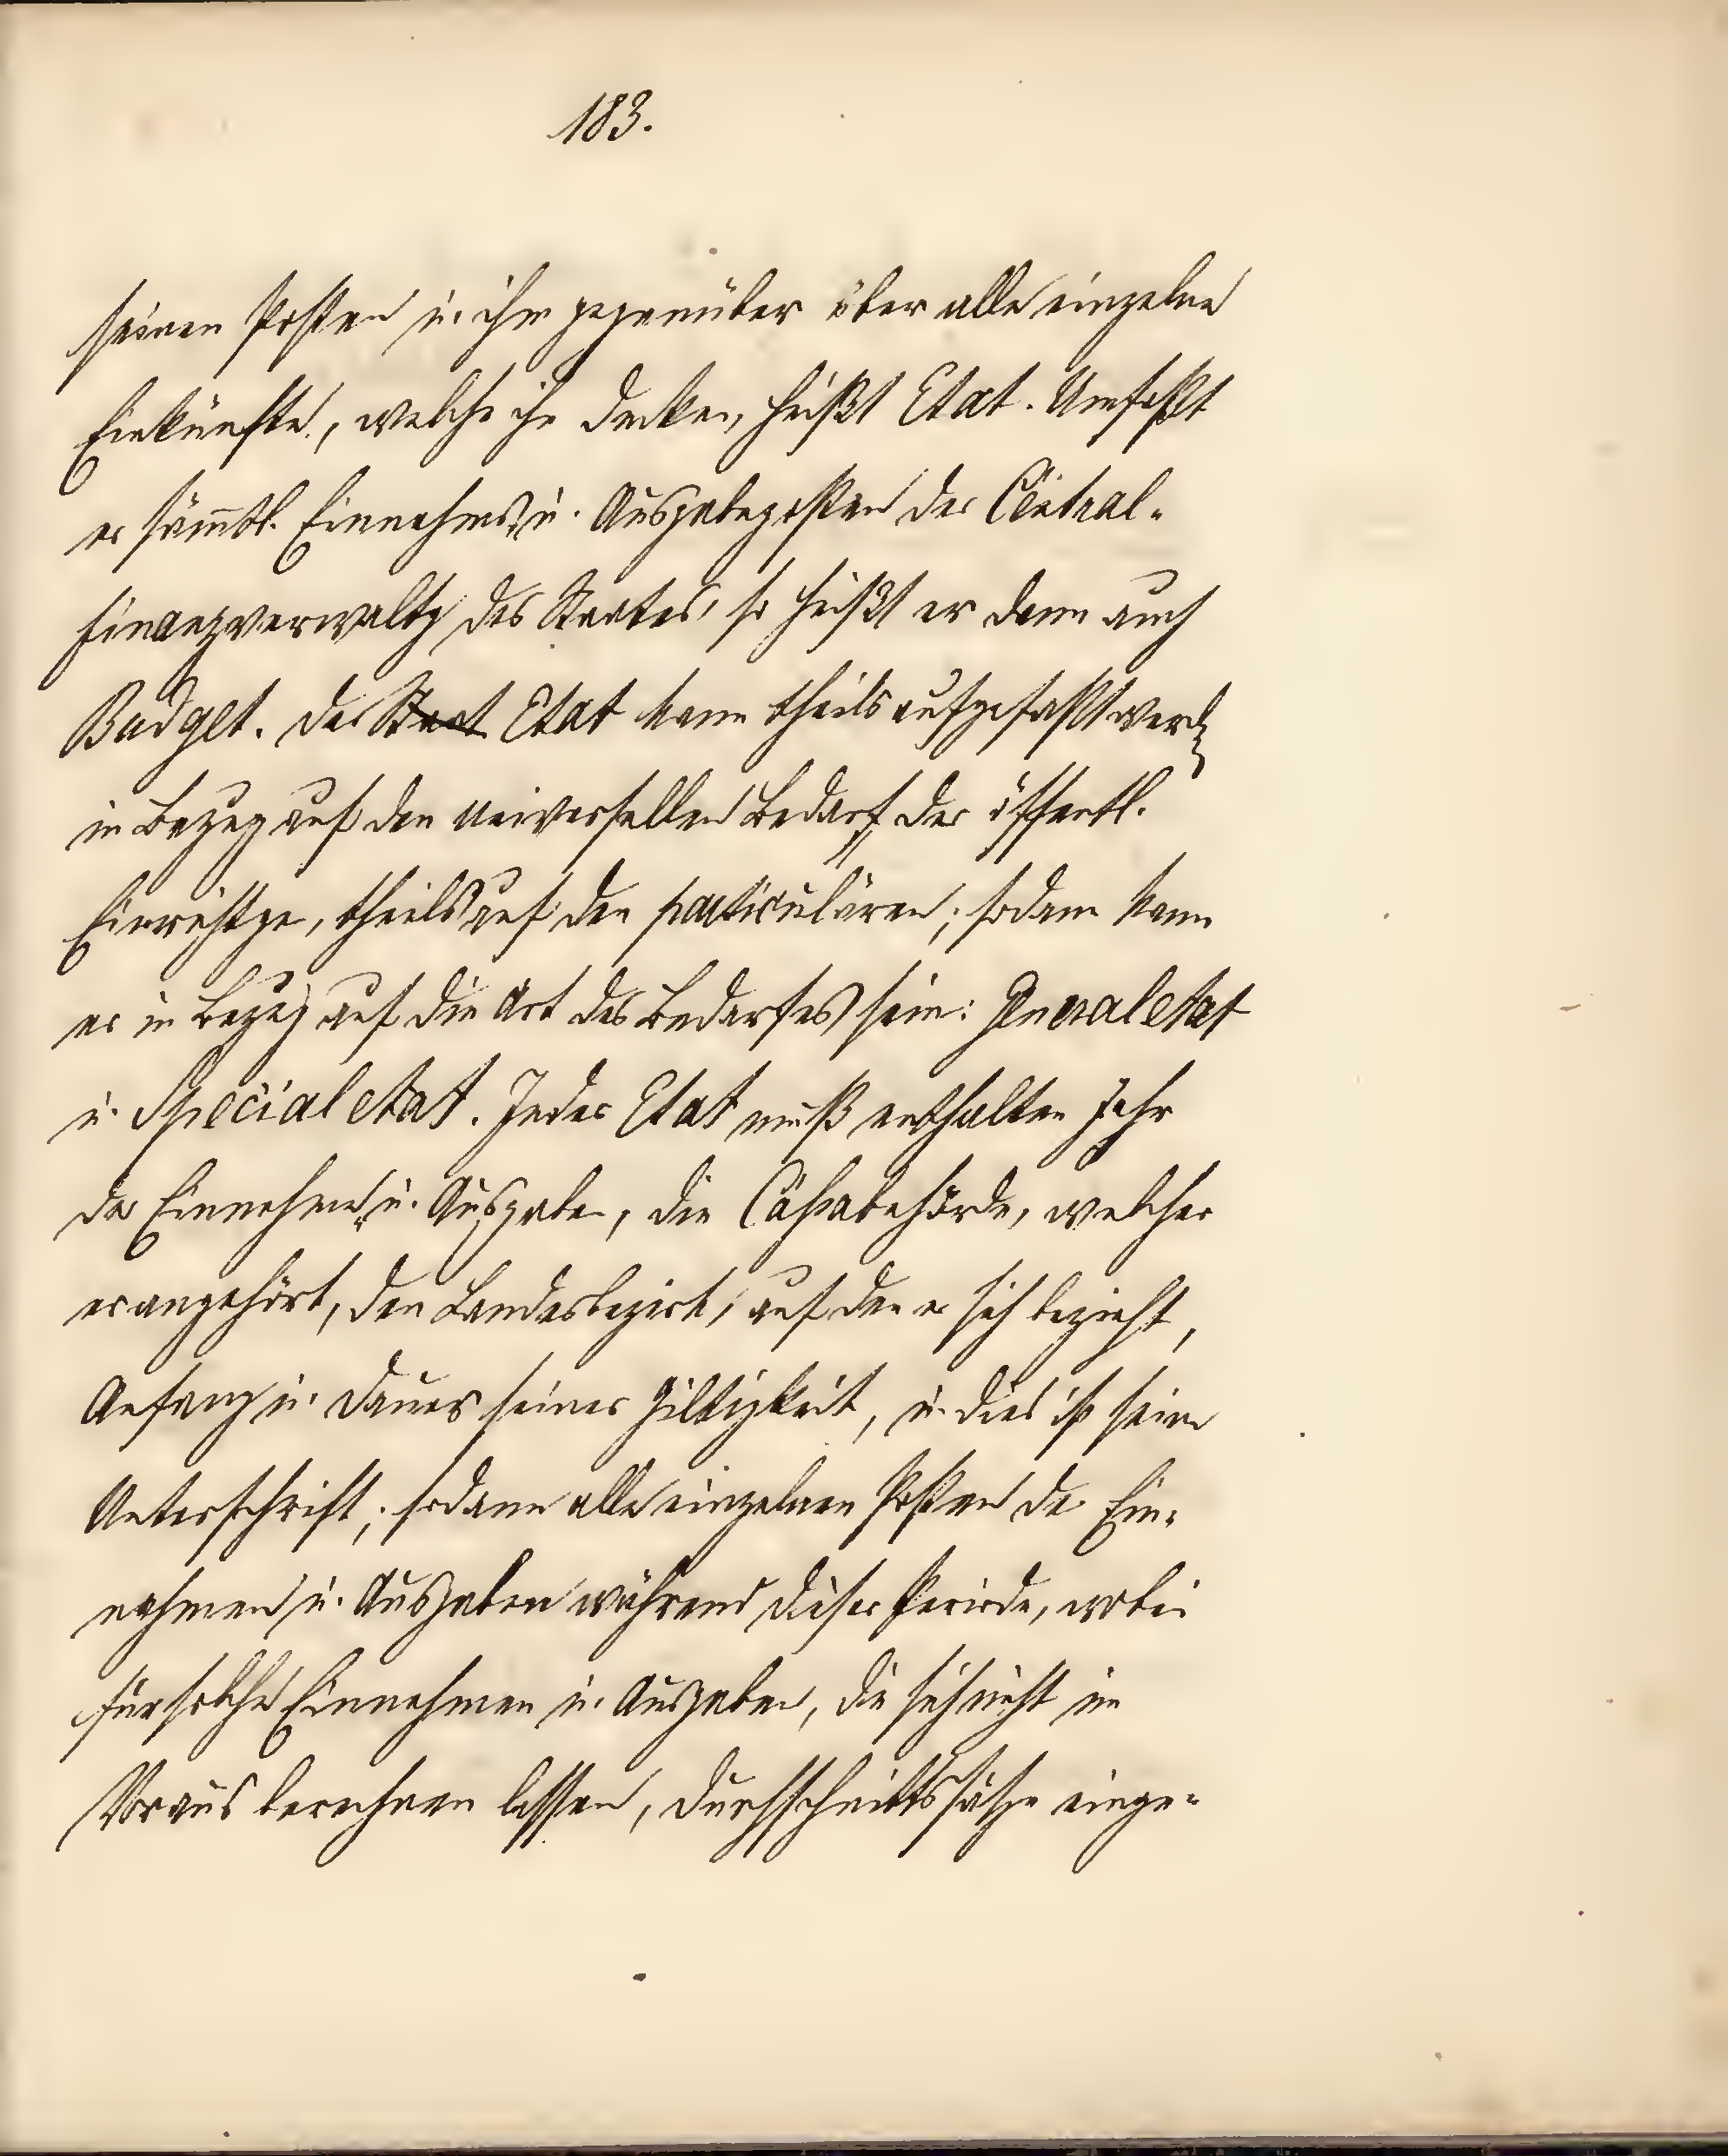 183.
seinen Posten u. ihm gegenüber über alle einzelne
Einkünfte, welche ihn decken, heißt Etat. Umfaßt
er sämtl. Einnahms u. Ausgabeposten der Central-
finanzverwaltg des Staates, so heißt er dann auch
Budget. Der Staat Etat kann theils aufgefaßt werd
in Bezug auf den universellen Bedarf der öffentl.
Einrichtge, theils auf den particulären; sodann kann
er in Bezug auf die Art des Bedarfes sein: Generaletat
u. Specialetat. Jeder Etat muß enthalten Jahr
der Einnahme u. Ausgabe, die Cassabehörde, welcher
er angehört, den Landesbezirk, auf den er sich bezieht,
Anfang u. Dauer seiner Giltigkeit, u. dies ist seine
Unterschrift; sodann alle einzelnen Posten der Ein-
nahmen u. Ausgaben während dieser Periode, wobei
für solche Einnahmen u. Ausgaben, die sich nicht im
Voraus berechnen lassen, Durchschnittssätze einge-